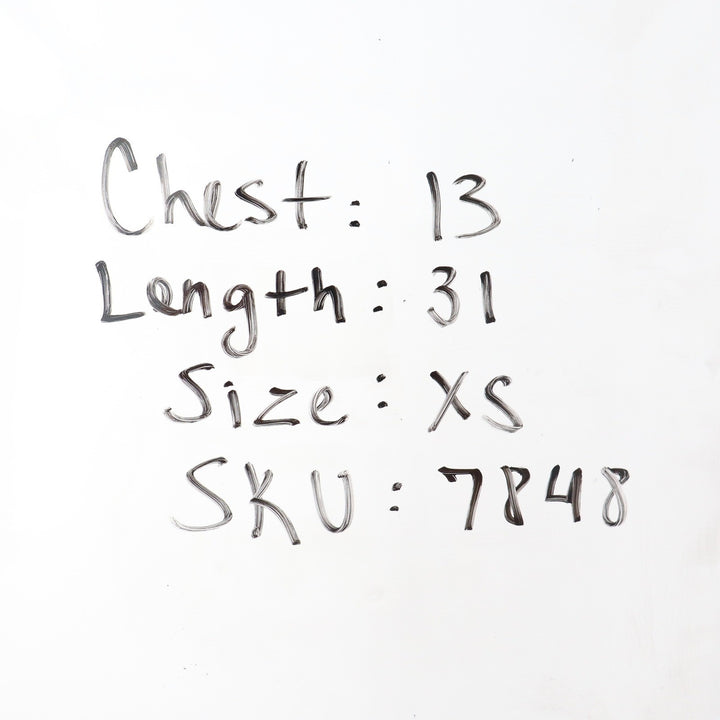 Chest: 13
Length: 31
Size: XS
SKU: 7848